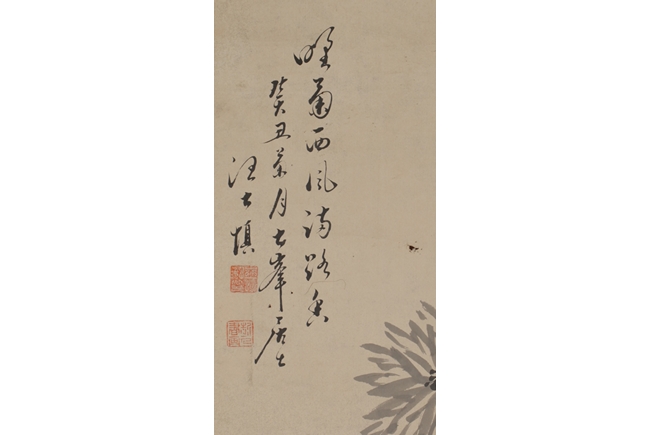 野菊西風滿路香
癸丑菊月七峯居士
汪士慎